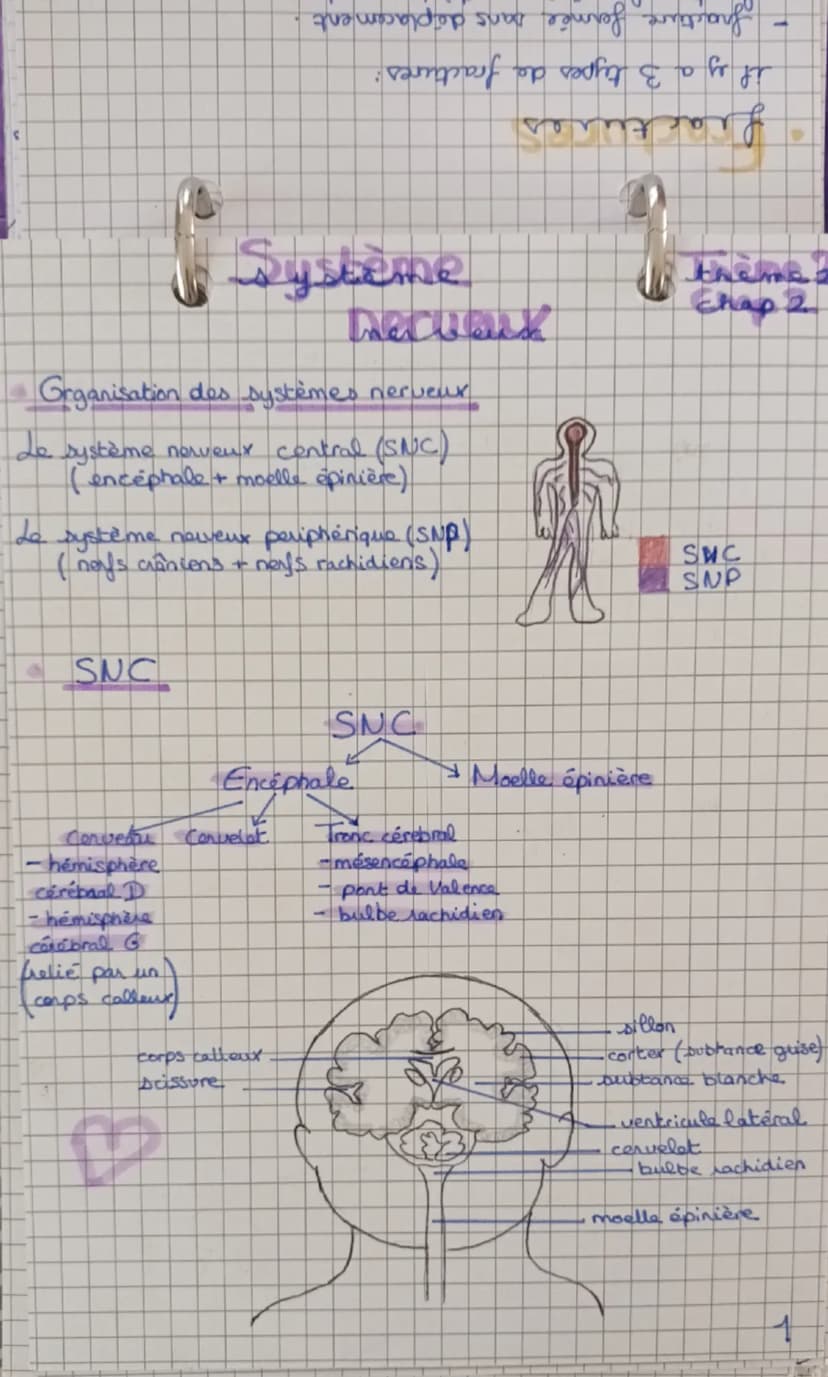 - fracture fermée sans déplacement.
il y a 3 types de fractures:
• fractures
Système
nerveux
thème 2
Chap 2
Organisation des systèmes nerveux
Le système nerveux central (SNC)
(encéphale + moelle épinière)
Le système nerveux periphérique (SNP)
(nerfs crâniens + nerfs rachidiens)
SNC
SNP
SNC
SNC
Encéphale
Moelle épinière
Cerveau Cervelet Tronc cérébral
- hémisphère
cérébral D
- hémisphère
cérébral G
(relié par un
corps calleux)
- mésencéphale
- pont de Valence
- bulbe rachidien
corps calleux
scissure
sillon
cortex (subtance grise)
subtance blanche
ventricule latéral
cervelet
bulbe rachidien
moelle épinière
1